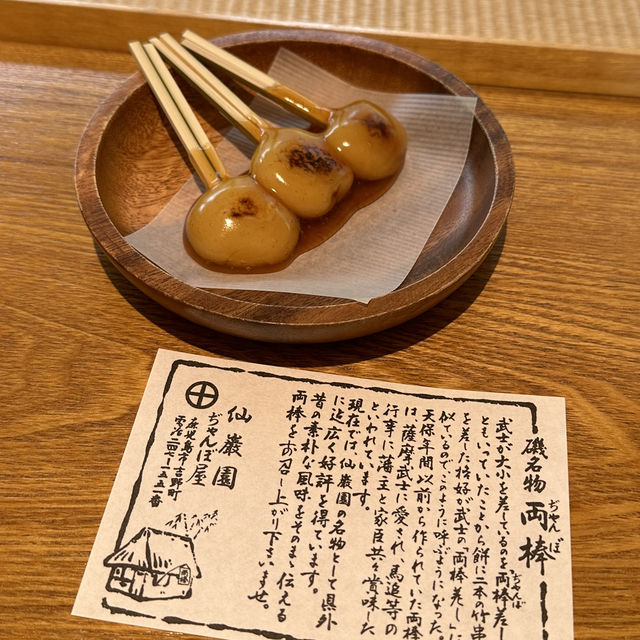 磯名物 両棒
ぢゃんぼ
武士が大小を差しているのを両棒差し
ぢゃんぼ
ともいっていたことから餅に二本の竹串
を差した格好が武士の「両棒差し」に
似ているのでこのように呼ぶようになった。
天保年間以前から作られていた両棒
は薩摩武士に愛され、馬追等の
行事に藩主と家臣共々賞味した
といわれています。
現在では、仙巌園の名物として県外
に迄広く好評を得ています。
昔の素朴な風味をそのまゝ伝える
両棒をお召し上がり下さいませ。
仙巌園
ぢゃんぼ屋
鹿児島市吉野町